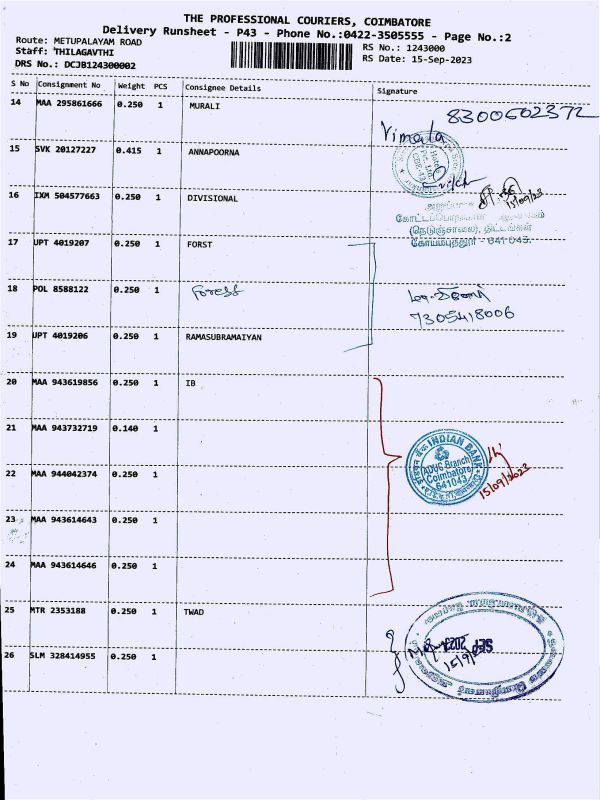 THE PROFESSIONAL COURIERS, COIMBATORE
Delivery Runsheet - P43 - Phone No.:0422-3505555 - Page No.:2
Route: METUPALAYAM ROAD
RS No.: 1243000
Staff: THILAGAVTHI
RS Date: 15-Sep-2023
DRS No.: DCJB124300002
S No Consignment No Weight PCS Consignee Details Signature
14 MAA 295861666 0.250 1 MURALI
8300602372
Vimala
15 SVK 20127227 0.415 1 ANNAPOORNA
16 IXM 504577663 0.250 1 DIVISIONAL
15/09/23
(நெடுஞ்சாலை), திட்டங்கள்
கோயம்புத்தூர் - 641 043.
17 UPT 4019207 0.250 1 FORST
18 POL 8588122 0.250 1 Forest
7305418006
19 UPT 4019206 0.250 1 RAMASUBRAMAIYAN
20 MAA 943619856 0.250 1 IB
21 MAA 943732719 0.140 1
INDIAN BANK
ADUC Branch
Coimbatore
641043
15/09/2023
22 MAA 944042374 0.250 1
23 MAA 943614643 0.250 1
24 MAA 943614646 0.250 1
25 MTR 2353188 0.250 1 TWAD
SEP 2023
15/9/23
26 SLM 328414955 0.250 1